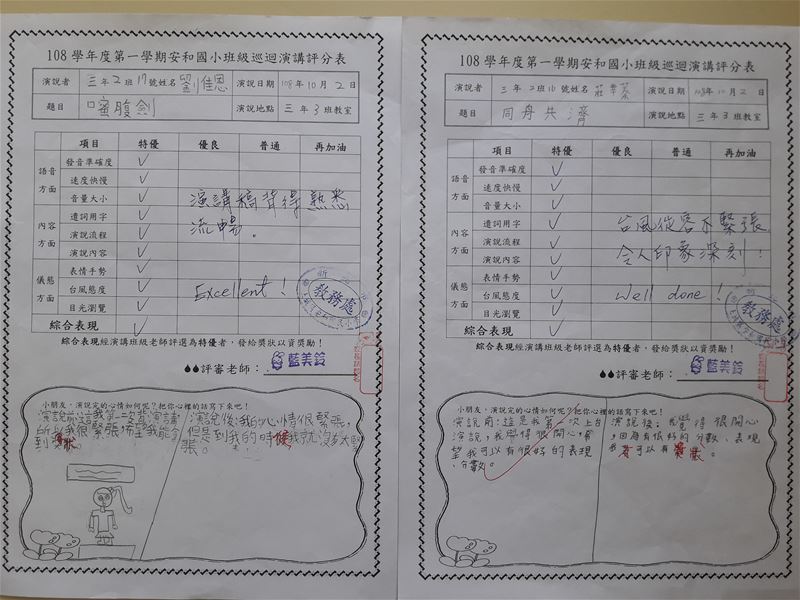 108 學年度第一學期安和國小班級巡迴演講評分表
演說者 三年2班17號姓名 劉佳恩 演說日期 108年10月2日
題目 口蜜腹劍 演說地點 三年3班教室
項目 特優 優良 普通 再加油
語音方面 發音準確度 ✓
速度快慢 ✓
音量大小 ✓
內容方面 遣詞用字 ✓
演說流程 ✓
演說內容 ✓
儀態方面 表情手勢 ✓
台風態度 ✓
目光瀏覽 ✓
綜合表現 ✓
演講稿背得熟悉
流暢。
Excellent!
教務處
綜合表現經演講班級老師評選為特優者,發給獎狀以資獎勵!
評審老師: 藍美鈴
小朋友,演說完的心情如何呢?把你心裡的話寫下來吧!
演說前:這我第二次
所以我很緊張,希望我能拿
到獎狀。
演說後:我的心情很緊張,
但是到我的時候我就沒有太緊
張。
108 學年度第一學期安和國小班級巡迴演講評分表
演說者 三年2班16號姓名 演說日期 108年10月2日
題目 同舟共濟 演說地點 三年3班教室
項目 特優 優良 普通 再加油
語音方面 發音準確度 ✓
速度快慢 ✓
音量大小 ✓
內容方面 遣詞用字 ✓
演說流程 ✓
演說內容 ✓
儀態方面 表情手勢 ✓
台風態度 ✓
目光瀏覽 ✓
綜合表現 ✓
台風從容不緊張
令人印象深刻!
Well done!
教務處
綜合表現經演講班級老師評選為特優者,發給獎狀以資獎勵!
評審老師: 藍美鈴
小朋友,演說完的心情如何呢?把你心裡的話寫下來吧!
演說前:這是我第一次上台
演說,我覺得很開心,希
望我可以有很好的表現
、分數。
演說後:我覺得很開心
,因為有很好的分數、表現
我可以有獎狀。